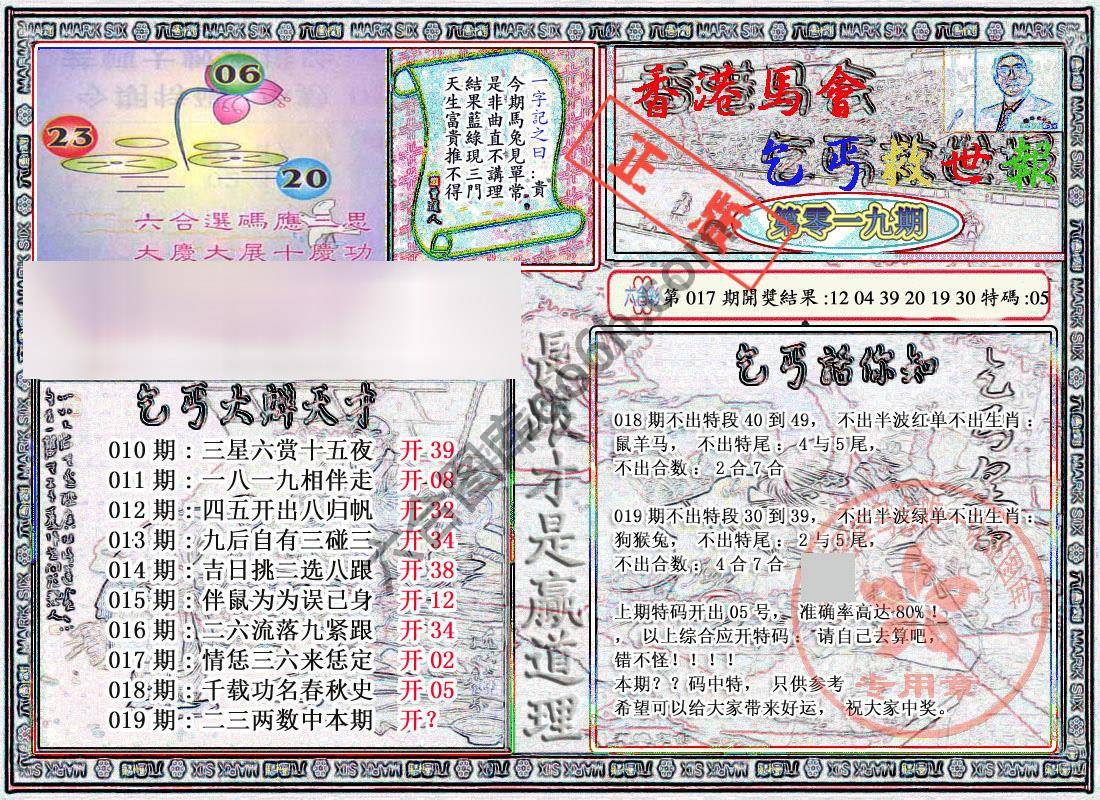 06
23
20
六合選碼應三畏
大慶大展十慶功
一字記之曰:貴
今期馬兔見單常
是非曲直不講理
結果藍綠現三門
天生富貴推不得
香港馬會
乞丐救世報
第零一九期
正版
第 017 期開獎結果 :12 04 39 20 19 30 特碼 :05
乞丐大辩天才
010 期 : 三星六赏十五夜 开 39
011 期 : 一八一九相伴走 开 08
012 期 : 四五开出八归帆 开 32
013 期 : 九后自有三碰三 开 34
014 期 : 吉日挑二选八跟 开 38
015 期 : 伴鼠为为误已身 开 12
016 期 : 三六流落九紧跟 开 34
017 期 : 情恁三六来恁定 开 02
018 期 : 千载功名春秋史 开 05
019 期 : 二三两数中本期 开 ?
才是贏道理
乞丐話你知
018 期不出特段 40 到 49， 不出半波红单不出生肖 :
鼠羊马， 不出特尾 : 4 与 5 尾，
不出合数 : 2 合 7 合
019 期不出特段 30 到 39， 不出半波绿单不出生肖 :
狗猴兔， 不出特尾 : 2 与 5 尾，
不出合数 : 4 合 7 合
上期特码开出 05 号， 准确率高达 80%！
， 以上综合应开特码 : 请自己去算吧，
错不怪！！！！
本期？？码中特， 只供参考
希望可以给大家带来好运， 祝大家中奖。
专用章
MARK SIX